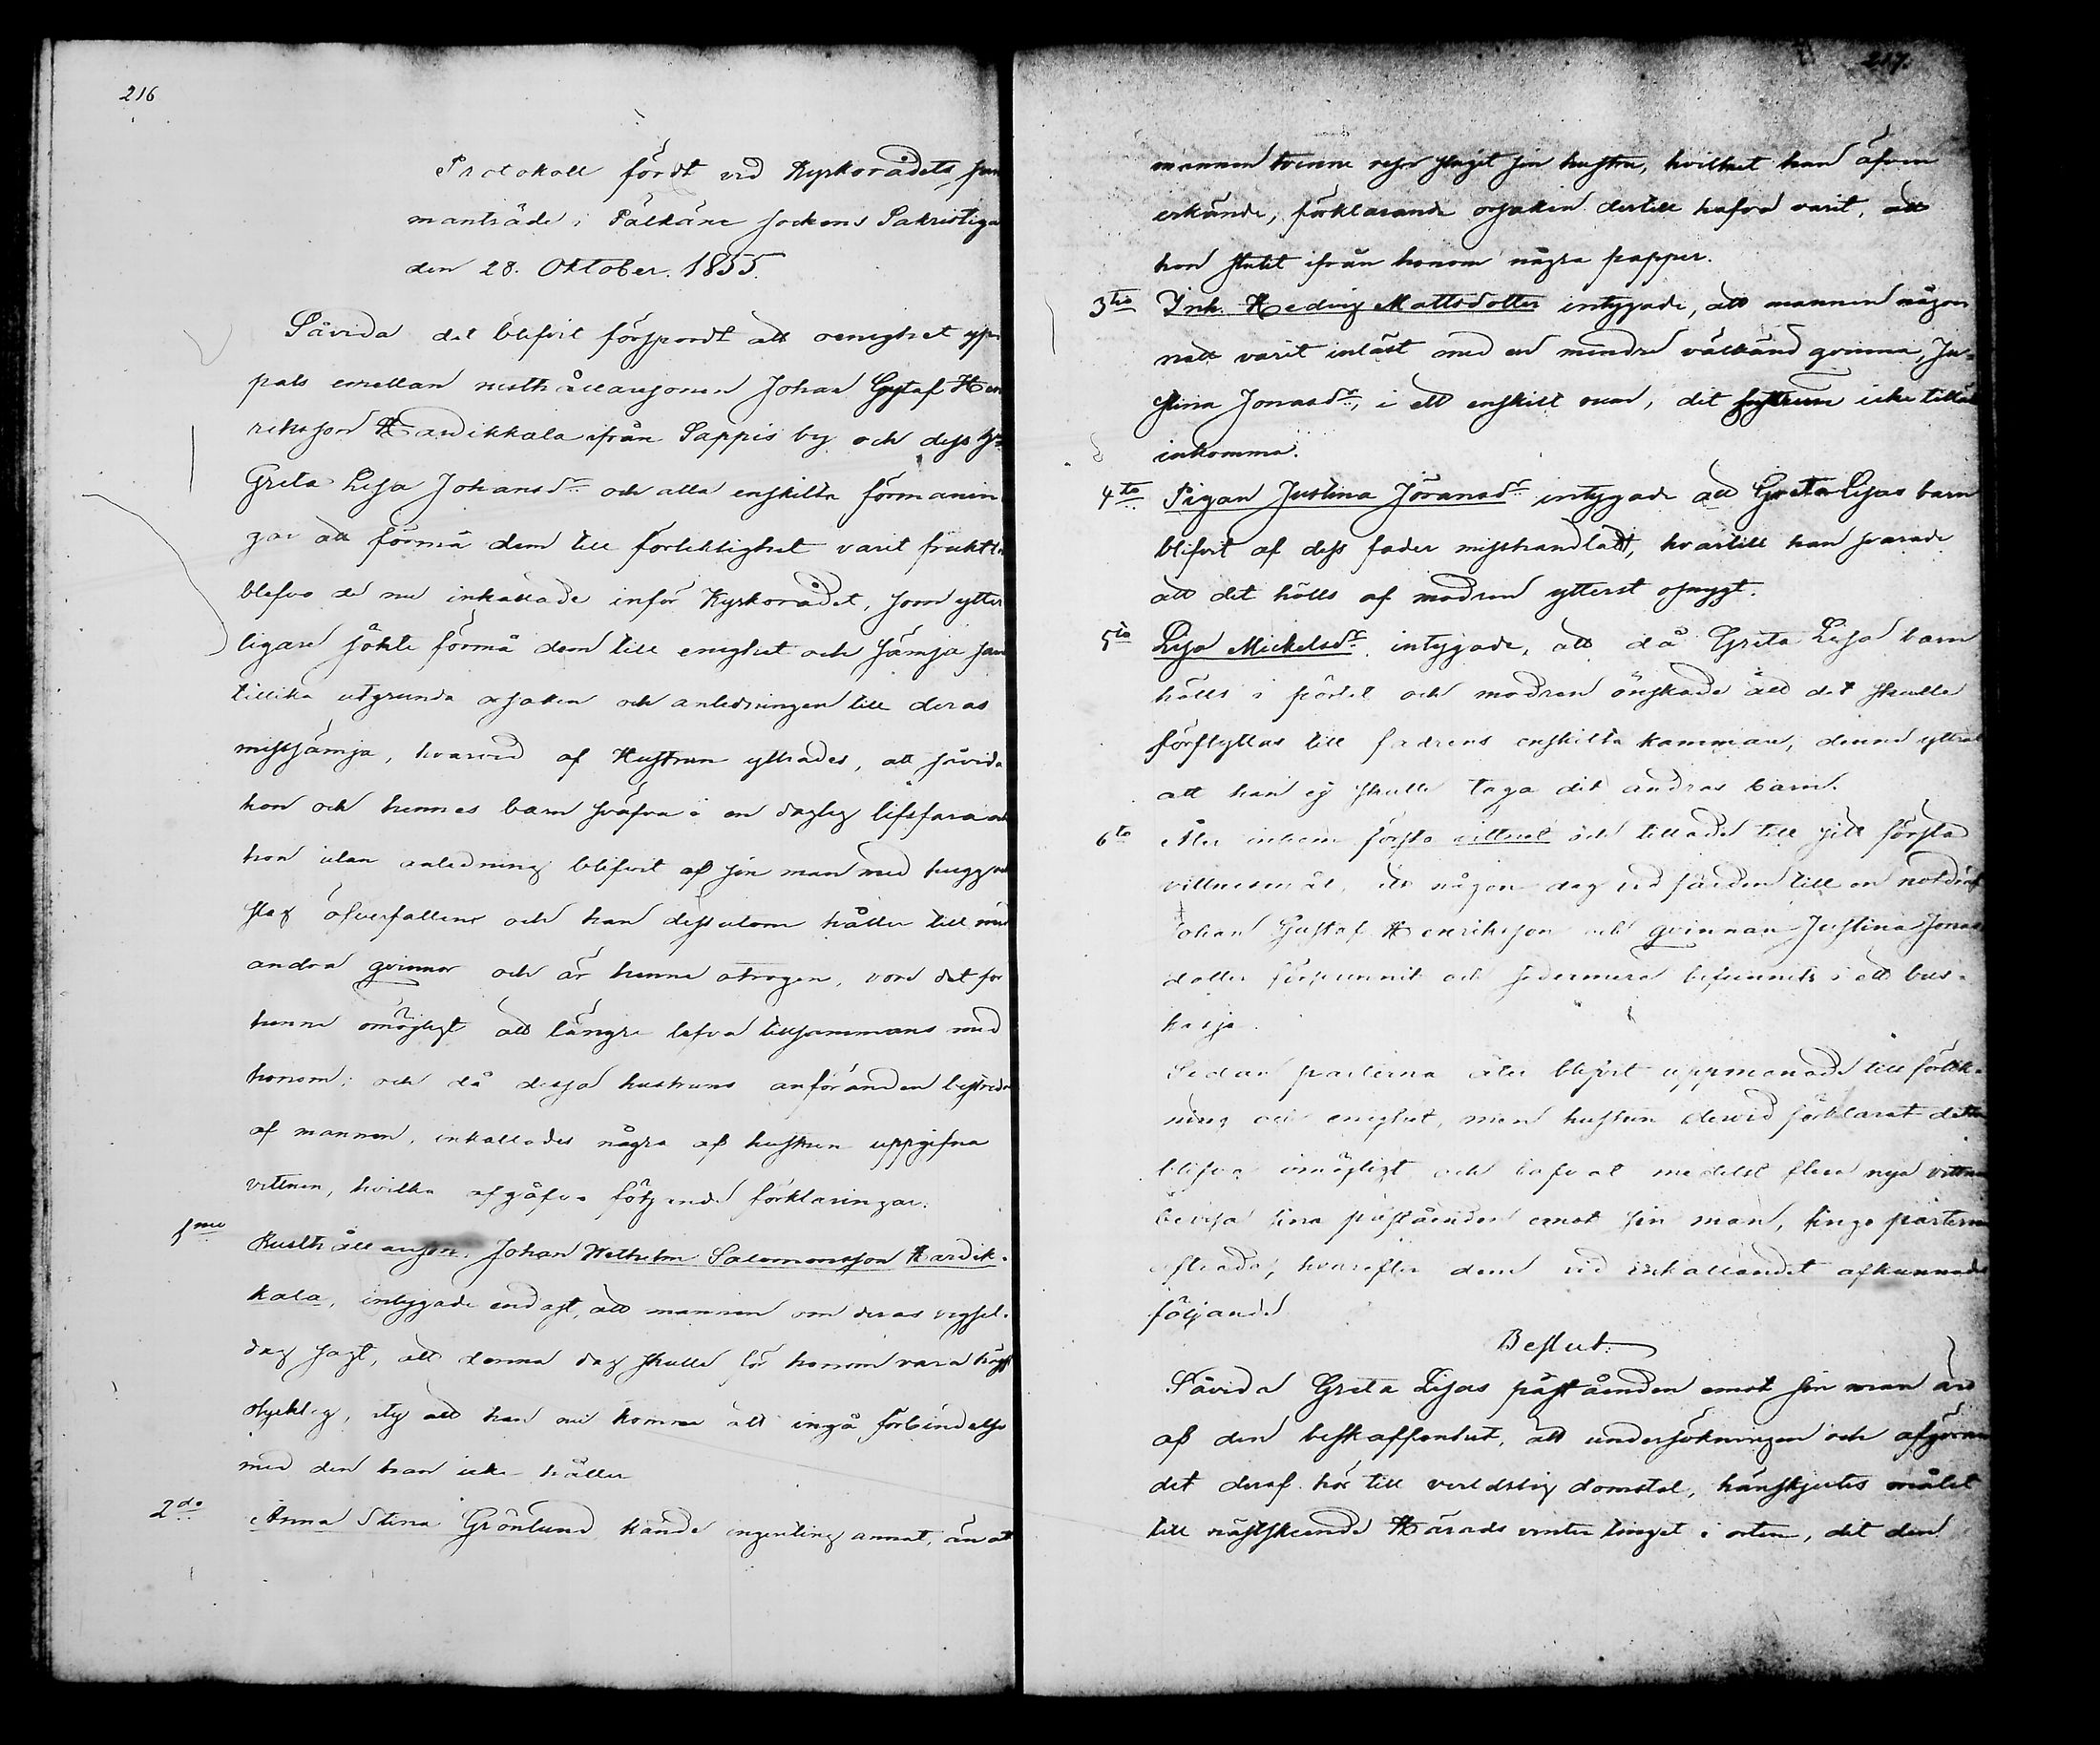 216
Protokoll fördt vid Kyrkorådets sam
manträde i Pälkäne sockens Sakristiga
den 28. Oktober. 1855.
Såvida det blifvit förspordt att oenighet yp
pats emellan rusthållaresonen Johan Gustaf Hen
riksson Hardikkala ifrån Sappis by och dess h
Greta Lisa Johansdr och alla enskilta förmanin
gar att förmå dem till förliktighet varit frukt
blefvo de nu inkallade inför Kyrkorådet, som ytter
ligare sökte förmå dem till enighet och sämja sam
tillika utgrunda orsaken och anledningen till deras
missämja, hvarvid af Hustrun yttrades, att såvida
hon och hennes barn sväfva i en daglig lifsfara och
hon utan anledning blifvit af sin man med hugg och
slag öfverfallen och han dessutom håller till med
andra qvinnor och är henne otrogen, vore det för
henne omöjligt att längre lefva tillsammans med
honom; och då dessa hustruns anföranden bestredos
af mannen, inkallades några af hustrun uppgifna
vittnen, hvilka afgåfvo följande förklaringar.
1mo Rusthållaresonen Johan Wilhelm Salomonsson Hardik-
kala, intygade endast, att mannen om deras vigsel-
dag sagt, att denna dag skulle för honom vara högst
olycklig, ty att han nu komme att ingå förbindelse
med den han icke håller
2do Anna Stina Grönlund kände ingenting annat, än att
217.
mannen tvenne resor slagit sin hustru, hvilket han äfven
erkände, förklarande orsaken dertill hafva varit, att
hon stulit ifrån honom några papper.
3tio Inh. Hedvig Mattsdotter intygade, att mannen någon
natt varit inläst med en mindre välkänd qvinna, Ju-
stina Jonasdr, i ett enskilt rum, dit hustrun icke tilläts
inkomma.
4to Pigan Justina Jöransdr intygade att Greta Lisas barn
blifvit af dess fader misshandladt, hvartill han svarade
att det hölls af modren ytterst osnygt.
5to Lisa Mickelsdr intygade, att då Greta Lisas barn
hölls i pörtet och modren önskade att det skulle
förflyttas till fadrens enskilta kammare, denne yttrat
att han ej skulle taga dit andras barn.
6to Åter inkom första vittnet och tillade till sitt första
vittnesmål, att någon dag vid färden till en notdrägt
Johan Gustaf Henriksson och qvinnan Justina Jonas
dotter försvunnit och sedermera befunnits i ett bus-
kasje.
Sedan parterna åter blifvit uppmanade till förlik-
ning och enighet, men hustrun dervid förklarat detta
blifva omöjligt och lofvat medelst flera nya vittnen
bevisa sina påståenden emot sin man, fingo parterna
afträda, hvarefter dem vid inkallandet afkunnades
följande
Beslut:
Såvida Greta Lisas påståenden emot sin man äro
af den beskaffenhet, att undersökningen och afgöran
det deraf hör till verldslig domstol, hänskjutes målet
till nästskeende Härads vinter tinget i orten, dit den